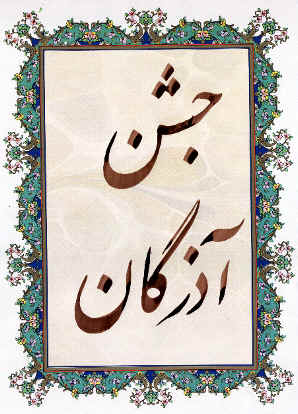 جشن
آذرگان